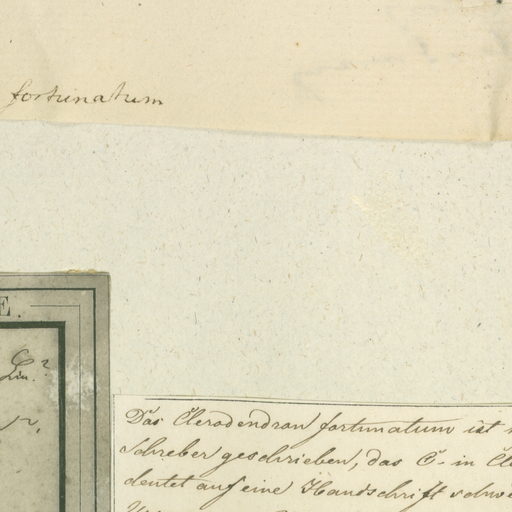 fortunatum
E.
Lin.?
Das Clerodendron fortunatum ist
Schreber geschrieben, das C- in Cle
deutet auf eine Handschrift schwe